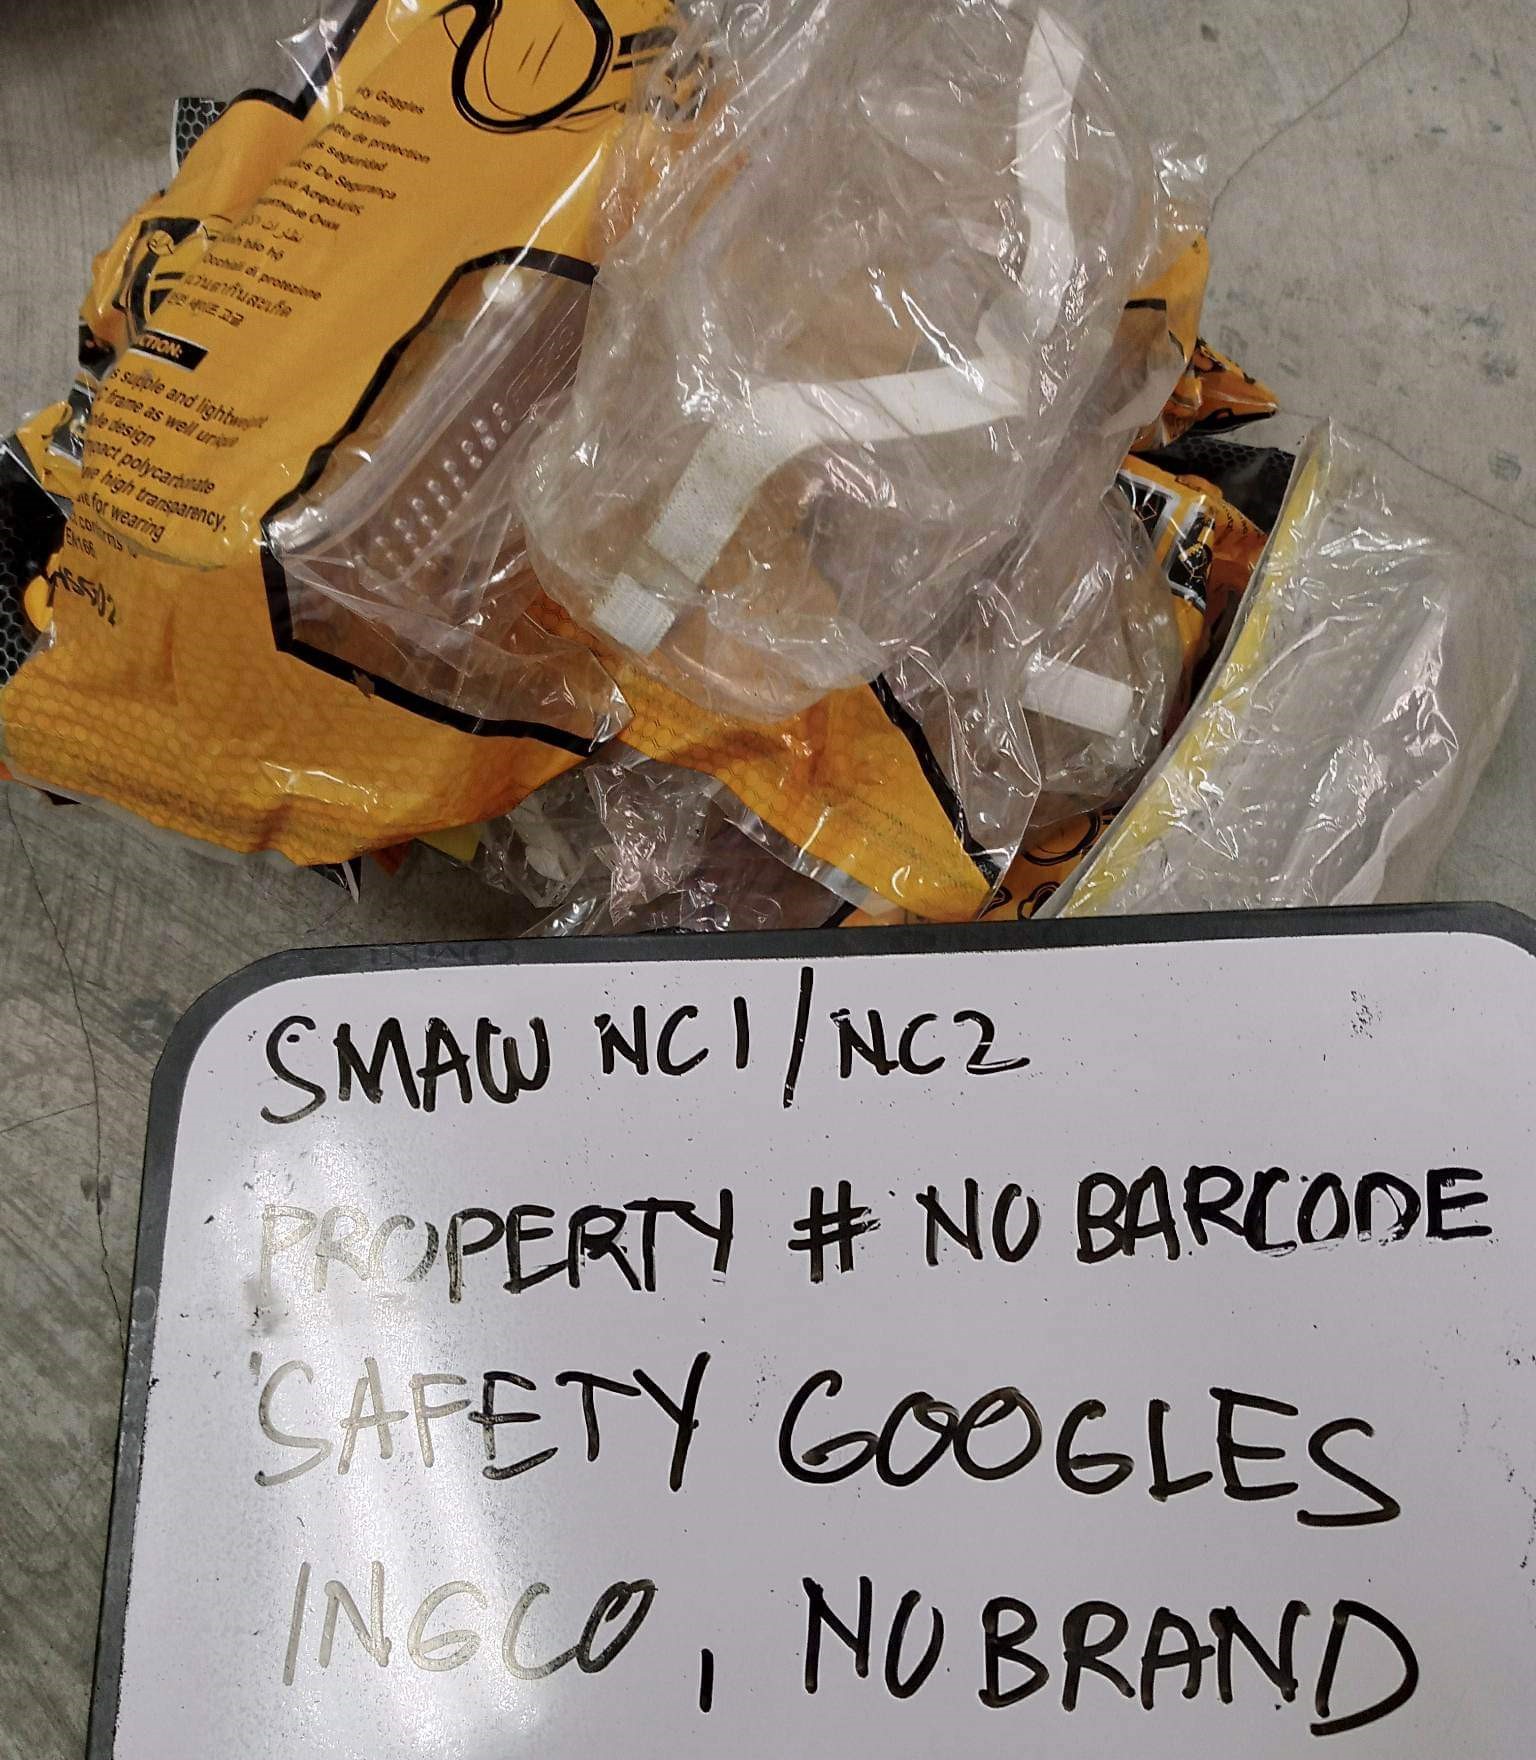 ty Goggles
tzbrille
tte de protection
as Seguridad
los De Segurança
итные Очки
nh bảo hộ
Occhiali di protezione
แว่นตากันสะเก็ด
CTION:
s supple and lightweight
frame as well unique
ole design
mpact polycarbonate
high transparency,
for wearing
conforms to
EN166
SMAW NC1/NC2
PROPERTY # NO BARCODE
SAFETY GOOGLES
INGCO, NO BRAND